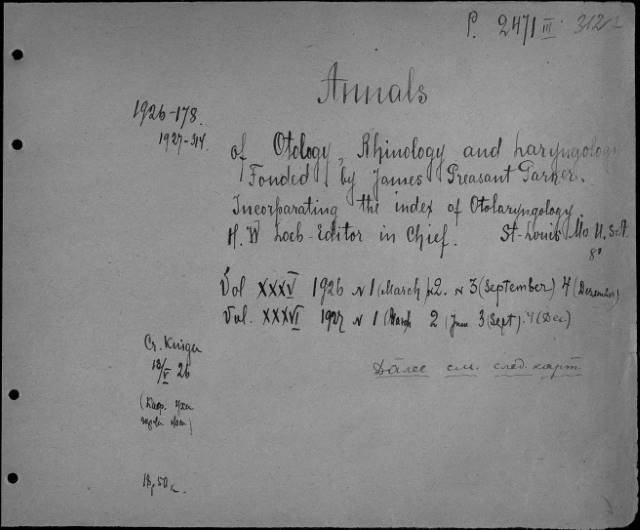 P. 2471 III 3121
Annals
1926-178.
1927-314.
of Otology, Rhinology and Laryngology
Fonded by James Preasant Parker.
Incorparating the index of Otolaryngology
H. W Loeb-Editor in Chief. St-Louis Mo U.S.A.
8°
Vol XXXV 1926 N 1 (March) 2. N 3 (September) 4 (December)
Vol. XXXVI 1927 N 1 (March 2 (June 3 (Sept). 4 (Dec)
Ст. Книги
18/V 26
Далее см. след. карт.
18,50